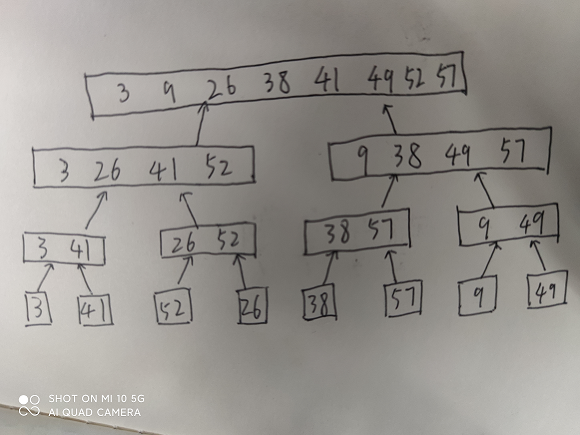 3 9 26 38 41 49 52 57
3 26 41 52 9 38 49 57
3 41 26 52 38 57 9 49
3 41 52 26 38 57 9 49
SHOT ON MI 10 5G
AI QUAD CAMERA